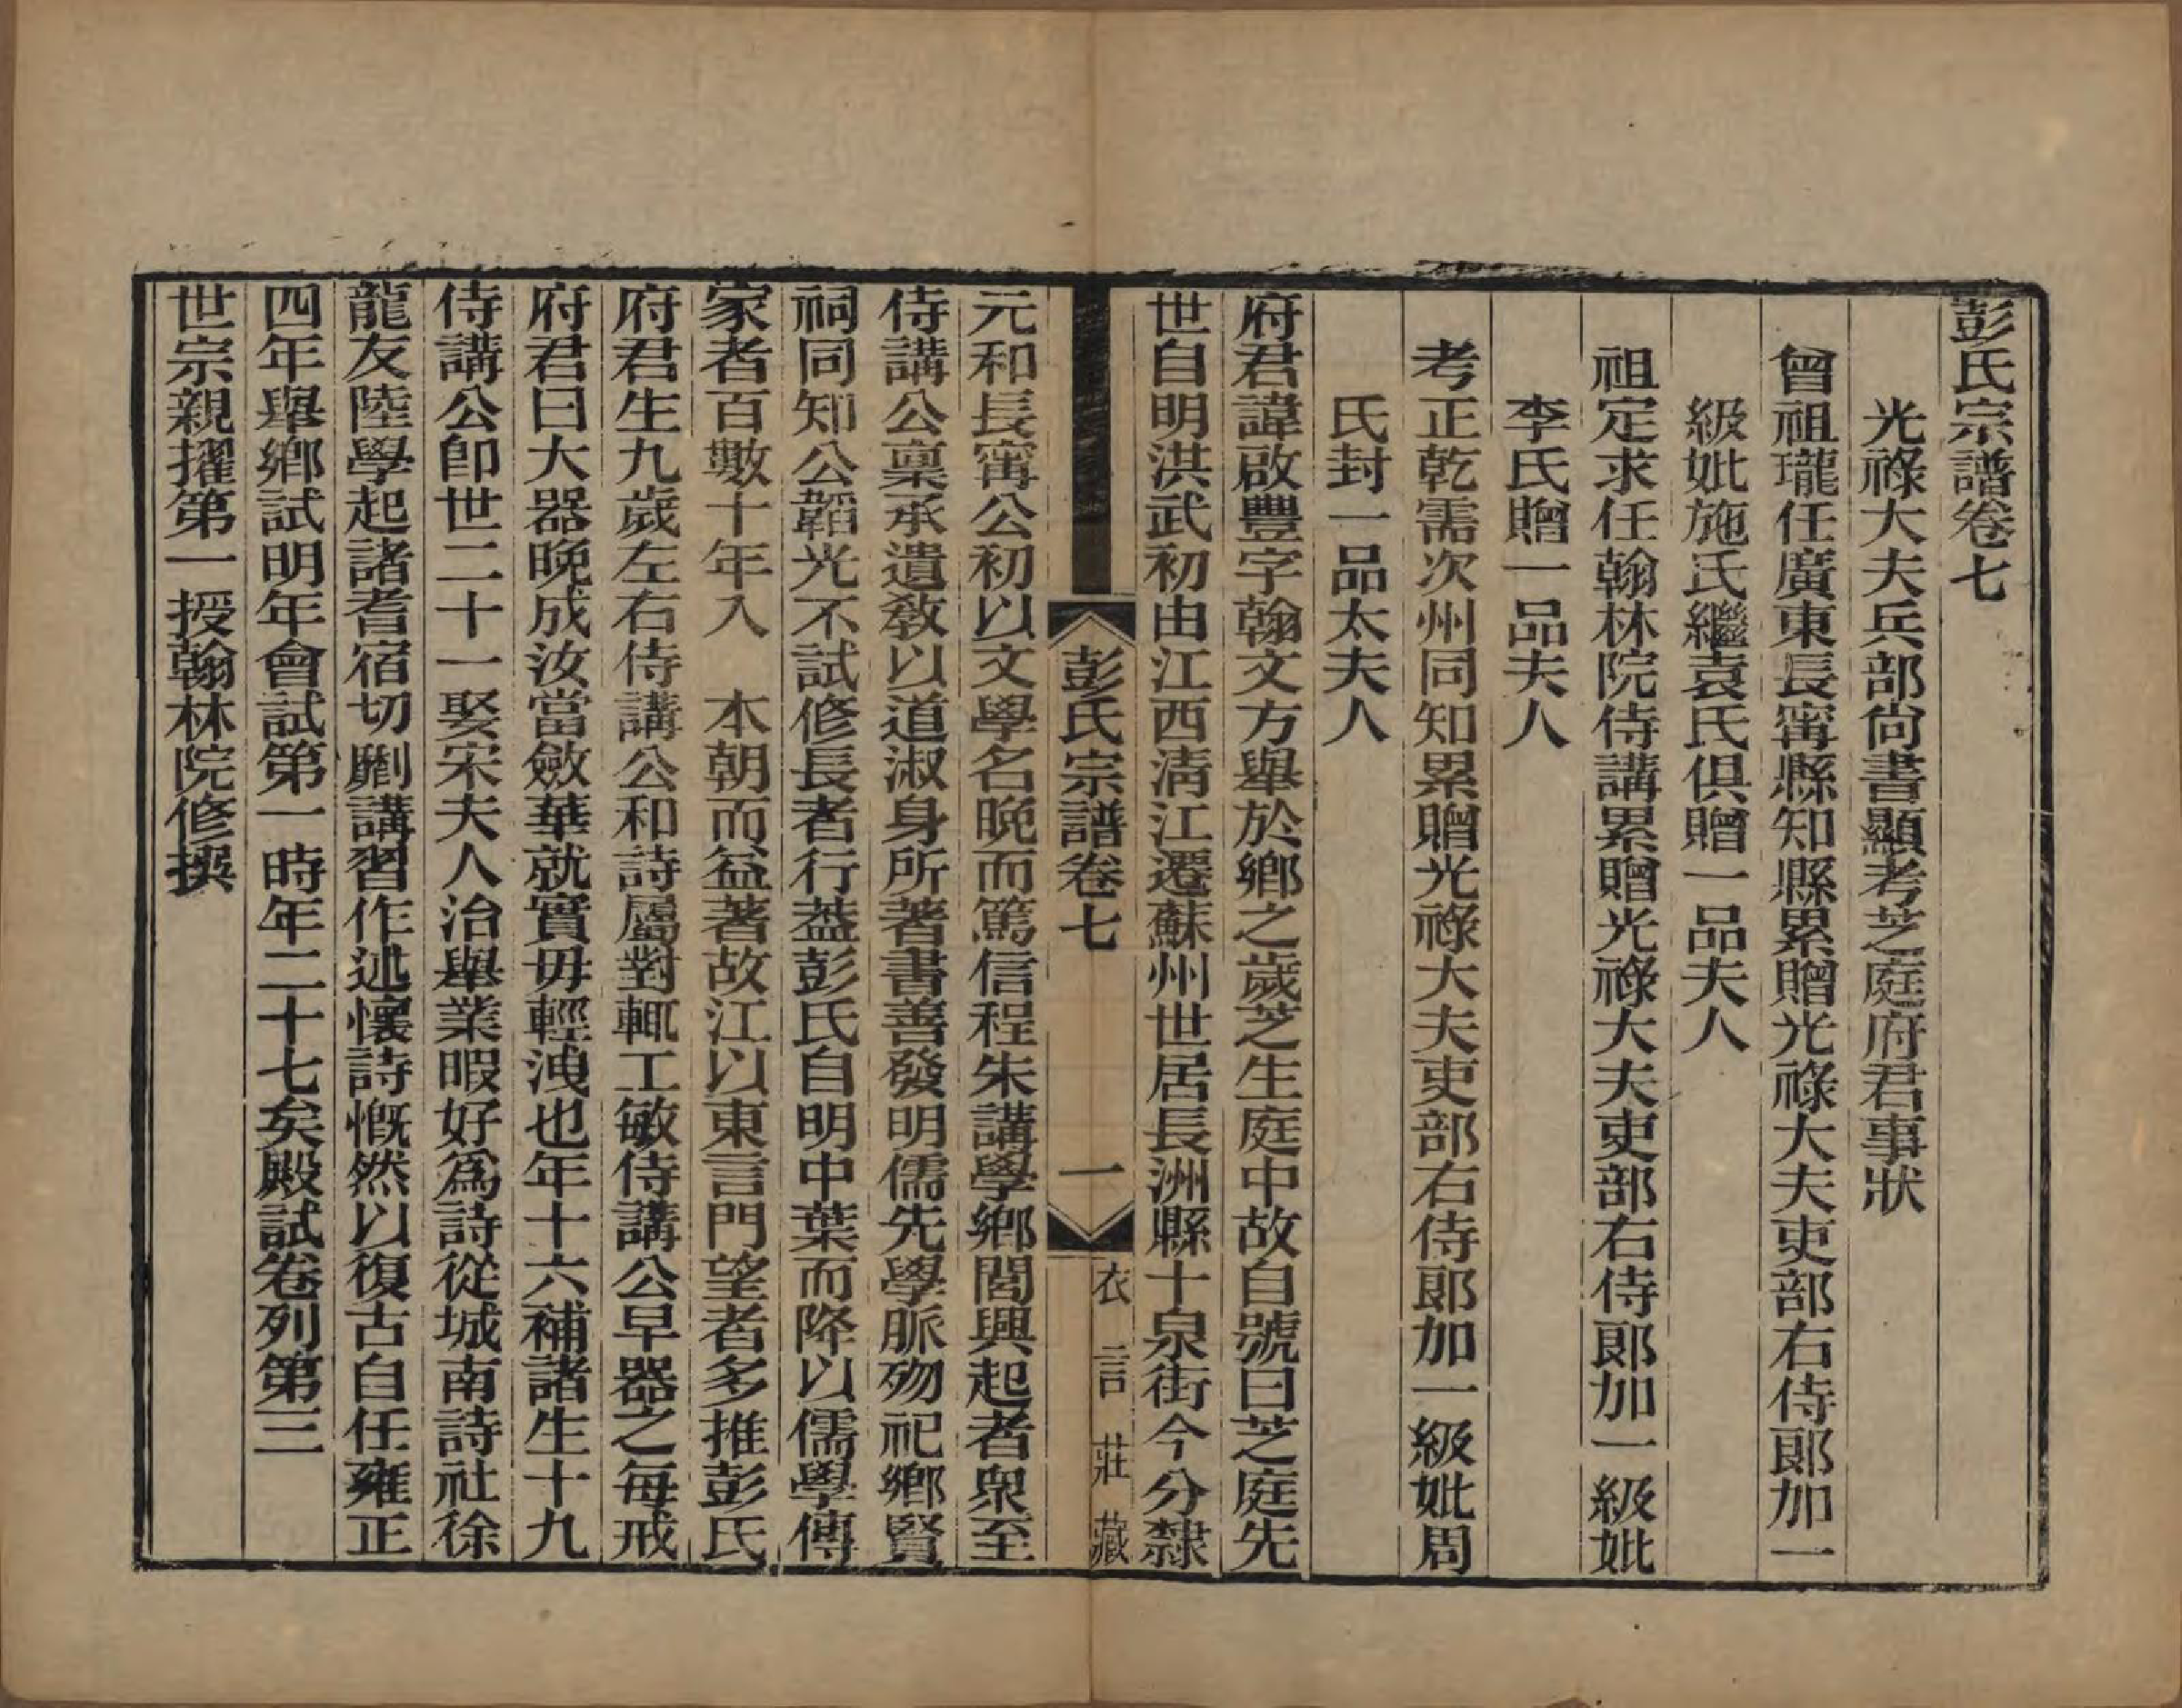 彭氏宗譜卷七
光祿大夫兵部尚書顯考芝庭府君事狀
曾祖瓏任廣東長甯縣知縣累贈光祿大夫吏部右侍郎加一
級妣施氏繼袁氏俱贈一品夫人
祖定求任翰林院侍講累贈光祿大夫吏部右侍郎加一級妣
李氏贈一品夫人
考正乾需次州同知累贈光祿大夫吏部右侍郎加一級妣周
氏封一品太夫人
府君諱啟豐字翰文方舉於鄉之歲芝生庭中故自號曰芝庭先
世自明洪武初由江西清江遷蘇州世居長洲縣十泉街今分隸
彭氏宗譜卷七
一
衣言莊藏
元和長甯公初以文學名晚而篤信程朱講學鄉閭興起者衆至
侍講公稟承遺敎以道淑身所著書善發明儒先學脈歿祀鄉賢
祠同知公韜光不試修長者行葢彭氏自明中葉而降以儒學傳
家者百數十年入　本朝而益著故江以東言門望者多推彭氏
府君生九歲左右侍講公和詩屬對輒工敏侍講公早器之每戒
府君曰大器晚成汝當斂華就實毋輕洩也年十六補諸生十九
侍講公卽世二十一娶宋夫人治舉業暇好爲詩從城南詩社徐
龍友陸學起諸耆宿切劘講習作述懷詩慨然以復古自任雍正
四年舉鄉試明年會試第一時年二十七矣殿試卷列第三
世宗親擢第一授翰林院修撰